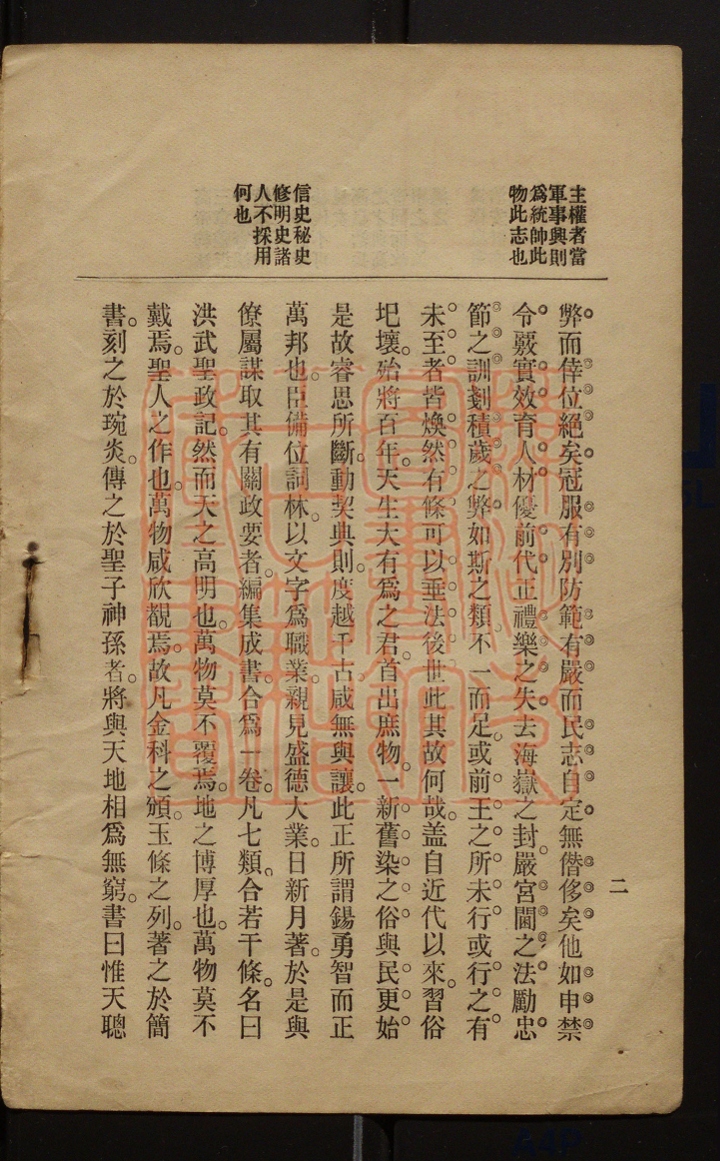 主權者當
軍事興則
爲統帥此
物此志也
信史秘史
修明史諸
人不採用
何也
二
弊而倖位絕矣冠服有別防範有嚴而民志自定無僭侈矣他如申禁
令覈實效育人材優前代正禮樂之失去海嶽之封嚴宮閫之法勵忠
節之訓剗積歲之弊如斯之類不一而足或前王之所未行或行之有
未至者皆煥然有條可以垂法後世此其故何哉蓋自近代以來習俗
圯壞殆將百年天生大有爲之君首出庶物一新舊染之俗與民更始
是故睿思所斷動契典則度越千古咸無與讓此正所謂錫勇智而正
萬邦也臣備位詞林以文字爲職業親見盛德大業日新月著於是與
僚屬謀取其有關政要者編集成書合爲一卷凡七類合若干條名曰
洪武聖政記然而天之高明也萬物莫不覆焉地之博厚也萬物莫不
戴焉聖人之作也萬物咸欣覩焉故凡金科之頒玉條之列著之於簡
書刻之於琬炎傳之於聖子神孫者將與天地相爲無窮書曰惟天聰